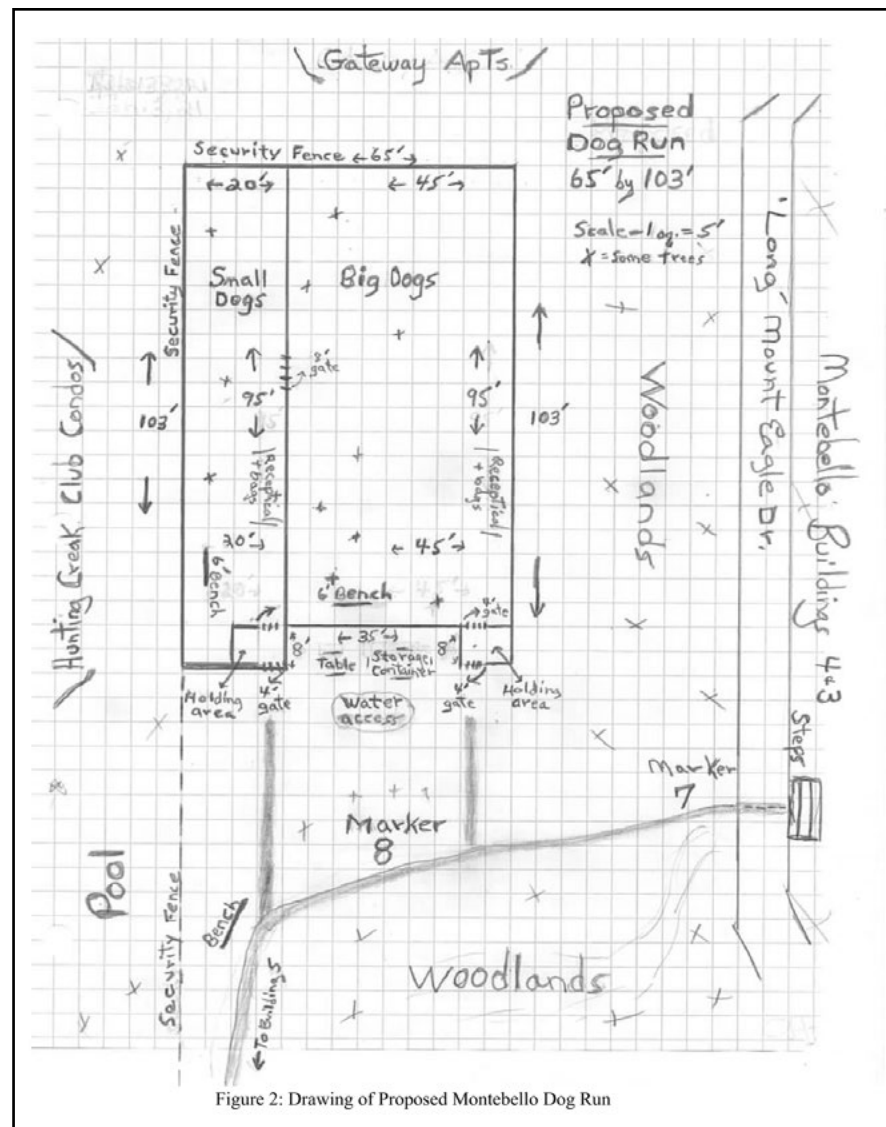 Gateway Apts
Proposed
Dog Run
65' by 103'
Scale - 1 sq. = 5'
X = some trees
Security Fence ←65'→
←20'→
←45'→
Security Fence
Small
Dogs
Big Dogs
8'
gate
95'
95'
103'
103'
Receptical
+ bags
Receptical
+ bags
20'→
←45'→
6' Bench
6' Bench
4'
gate
8'
←35'→
8'
Table
Storage
Container
Holding
area
4'
gate
Water
access
4'
gate
Holding
area
Hunting Creek Club Condos
Woodlands
'Long' Mount Eagle Dr.
Montebello Buildings 4+3
Steps
Marker
7
Marker
8
Pool
Security Fence
Bench
←To Building 5
Woodlands
Figure 2: Drawing of Proposed Montebello Dog Run